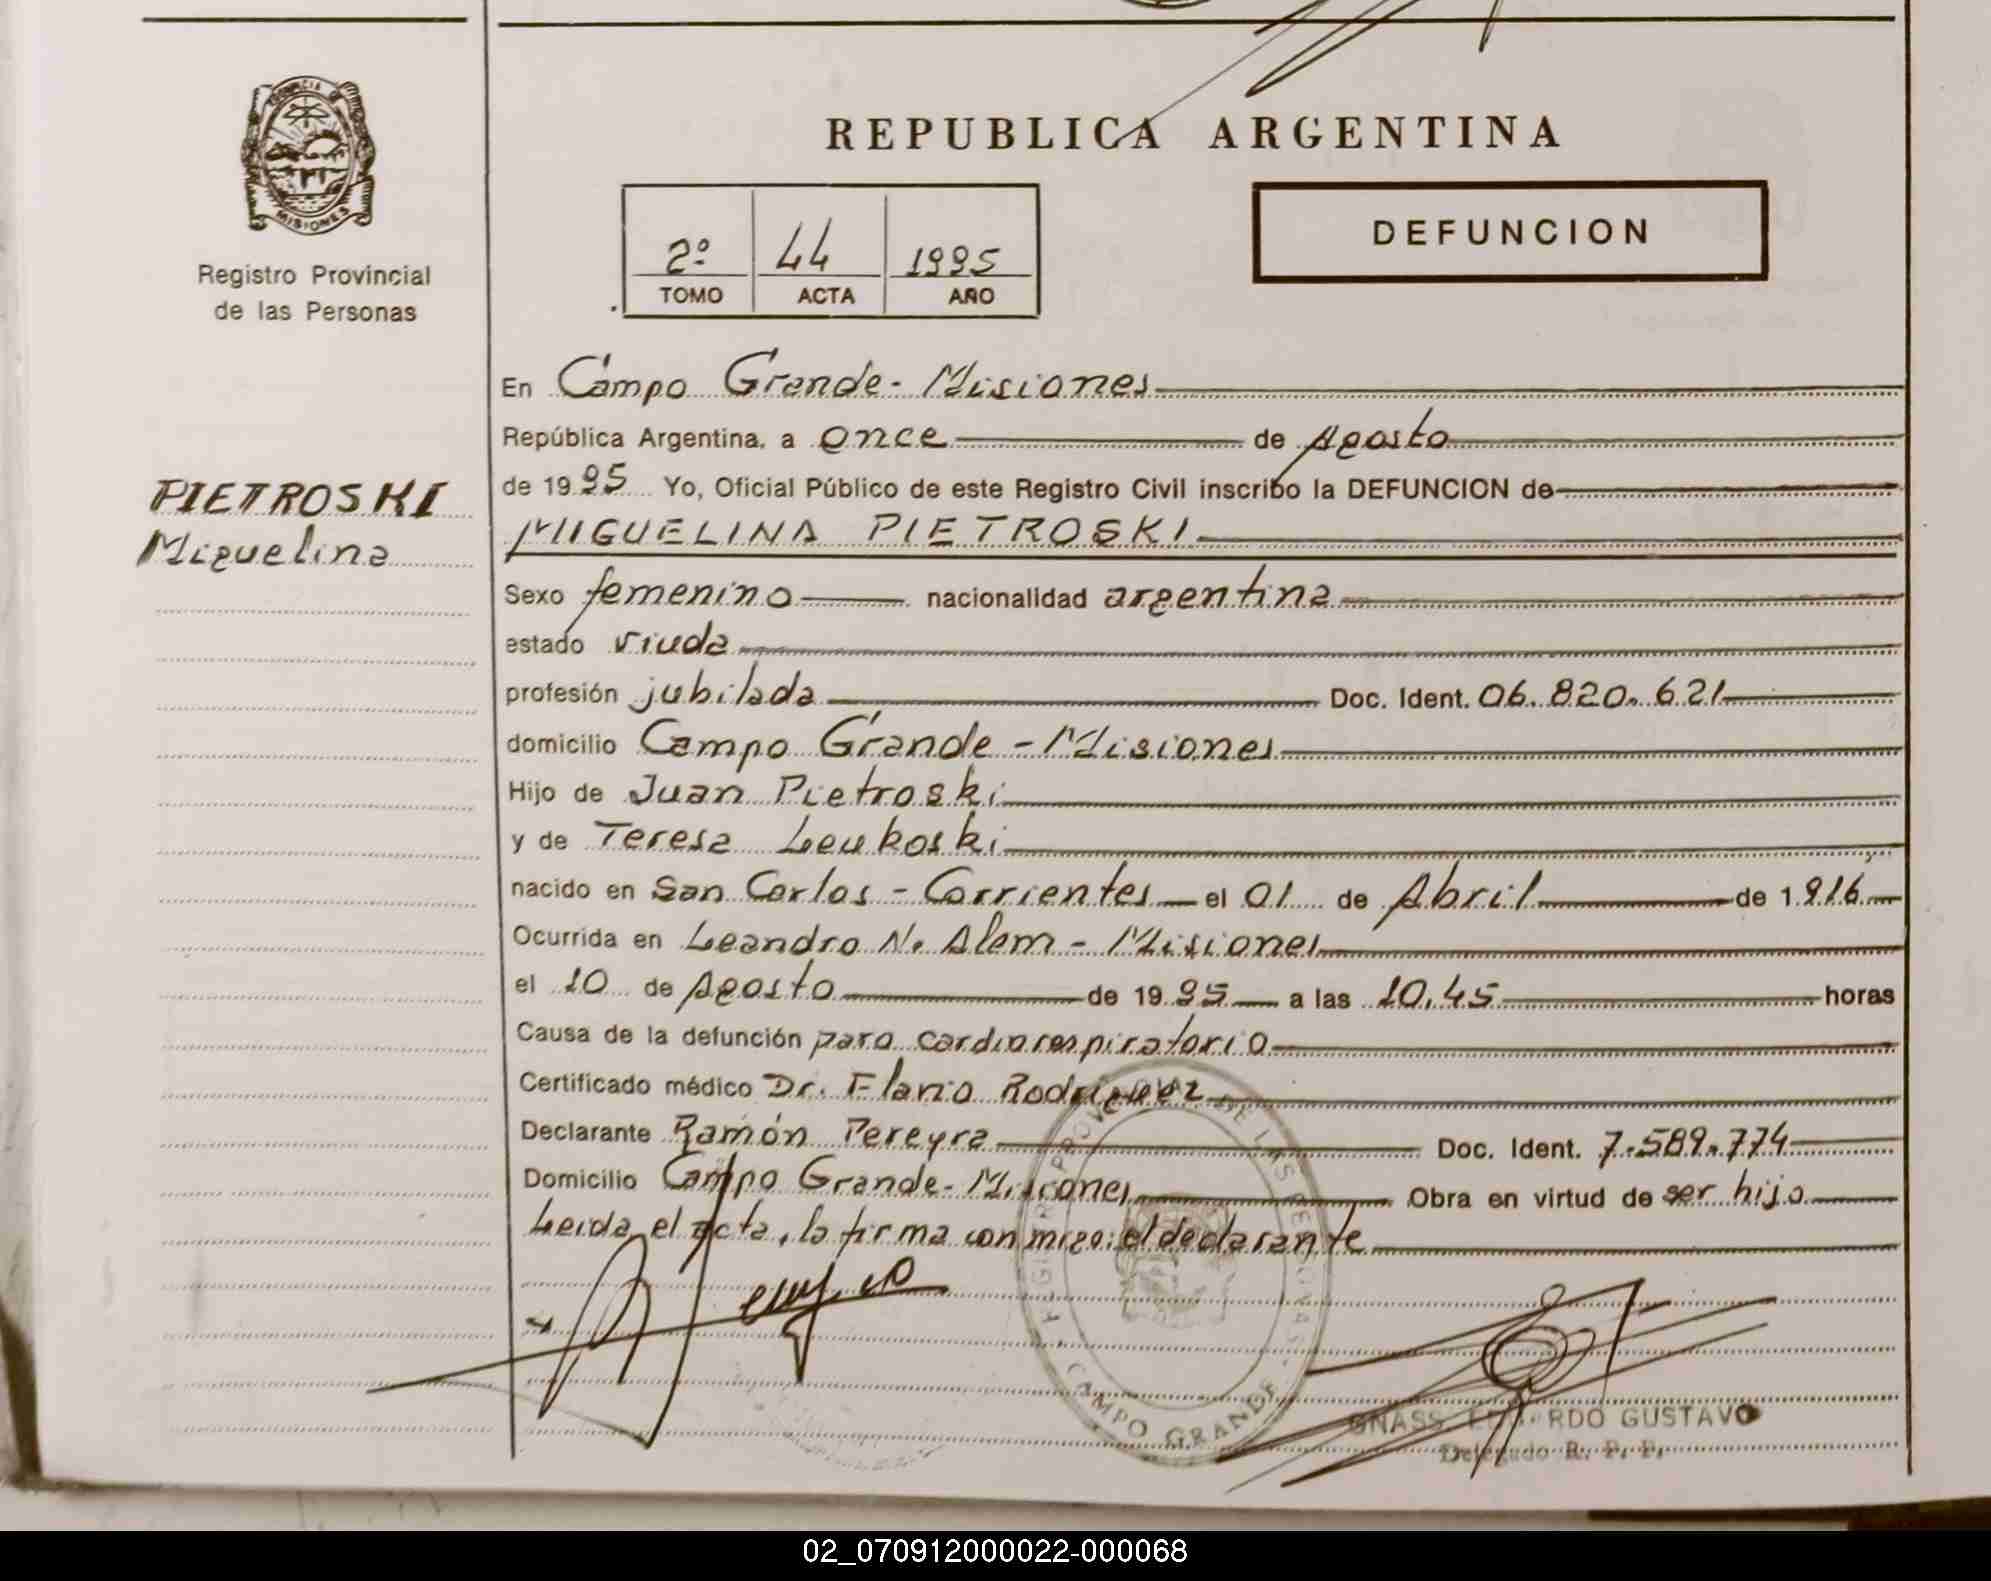 PROVINCIA DE
MISIONES
Registro Provincial
de las Personas
REPUBLICA ARGENTINA
2º 44 1995
TOMO ACTA AÑO
DEFUNCION
En Campo Grande - Misiones
República Argentina, a once de Agosto
de 1995 Yo, Oficial Público de este Registro Civil inscribo la DEFUNCION de
PIETROSKI
Miguelina
MIGUELINA PIETROSKI
Sexo femenino nacionalidad argentina
estado viuda
profesión jubilada Doc. Ident. 06.820.621
domicilio Campo Grande - Misiones
Hijo de Juan Pietroski
y de Teresa Leukoski
nacido en San Carlos - Corrientes el 01 de Abril de 1.916
Ocurrida en Leandro N. Alem - Misiones
el 10 de Agosto de 1995 a las 10,45 horas
Causa de la defunción paro cardiorespiratorio
Certificado médico Dr. Flavio Rodriguez
Declarante Ramón Pereyra Doc. Ident. 7.589.774
Domicilio Campo Grande - Misiones Obra en virtud de ser hijo
Leida el acta, la firma conmigo: el declarante
REGISTRO PROVINCIAL DE LAS PERSONAS
CAMPO GRANDE
GNASS EDUARDO GUSTAVO
Delegado R. P. P.
02_070912000022-000068